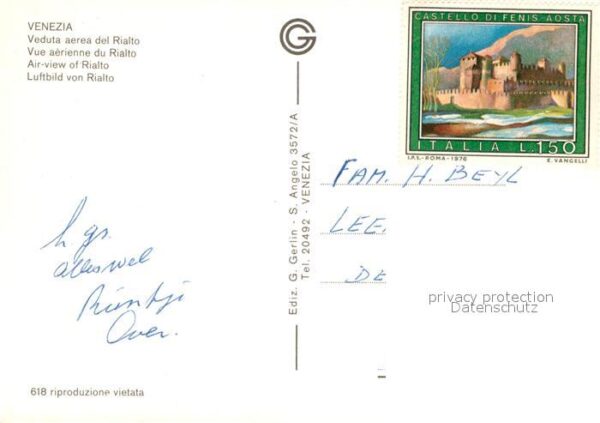 VENEZIA
Veduta aerea del Rialto
Vue aérienne du Rialto
Air-view of Rialto
Luftbild von Rialto
CASTELLO DI FENIS-AOSTA
ITALIA L.150
I.P.S.-ROMA-1976 E. VANGELLI
Ediz. G. Gerlin - S. Angelo 3572/A
Tel. 20492 - VENEZIA
FAM. H. BEYL
LEE
DE
h gr.
alles wel
privacy protection
Datenschutz
618 riproduzione vietata